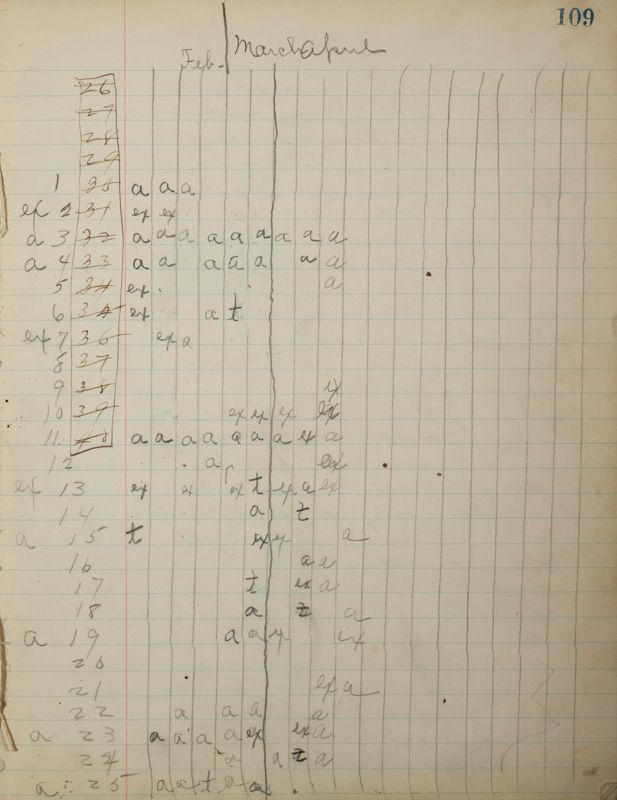 109
Feb. March April
26
27
28
29
1 30 a a a
ex 2 31 ex ex
a 3 32 a a a a a a a a a
a 4 33 a a a a a a a
5 34 ex. a
6 ex a t
ex 7 36 ex a
8 37
9 38 ex
10 39 ex ex ex ex
11. 40 a a a a a a a ex a
12 a ex
ex 13 ex ex t a ex
14 a t
a 15 t ex a
16 a a
17 t ex a
18 a t a
a 19 a a ex
20
21 ex a
22 a a a a
a 23 a a a a ex ex a
24 a t a
a 25 a a t a a